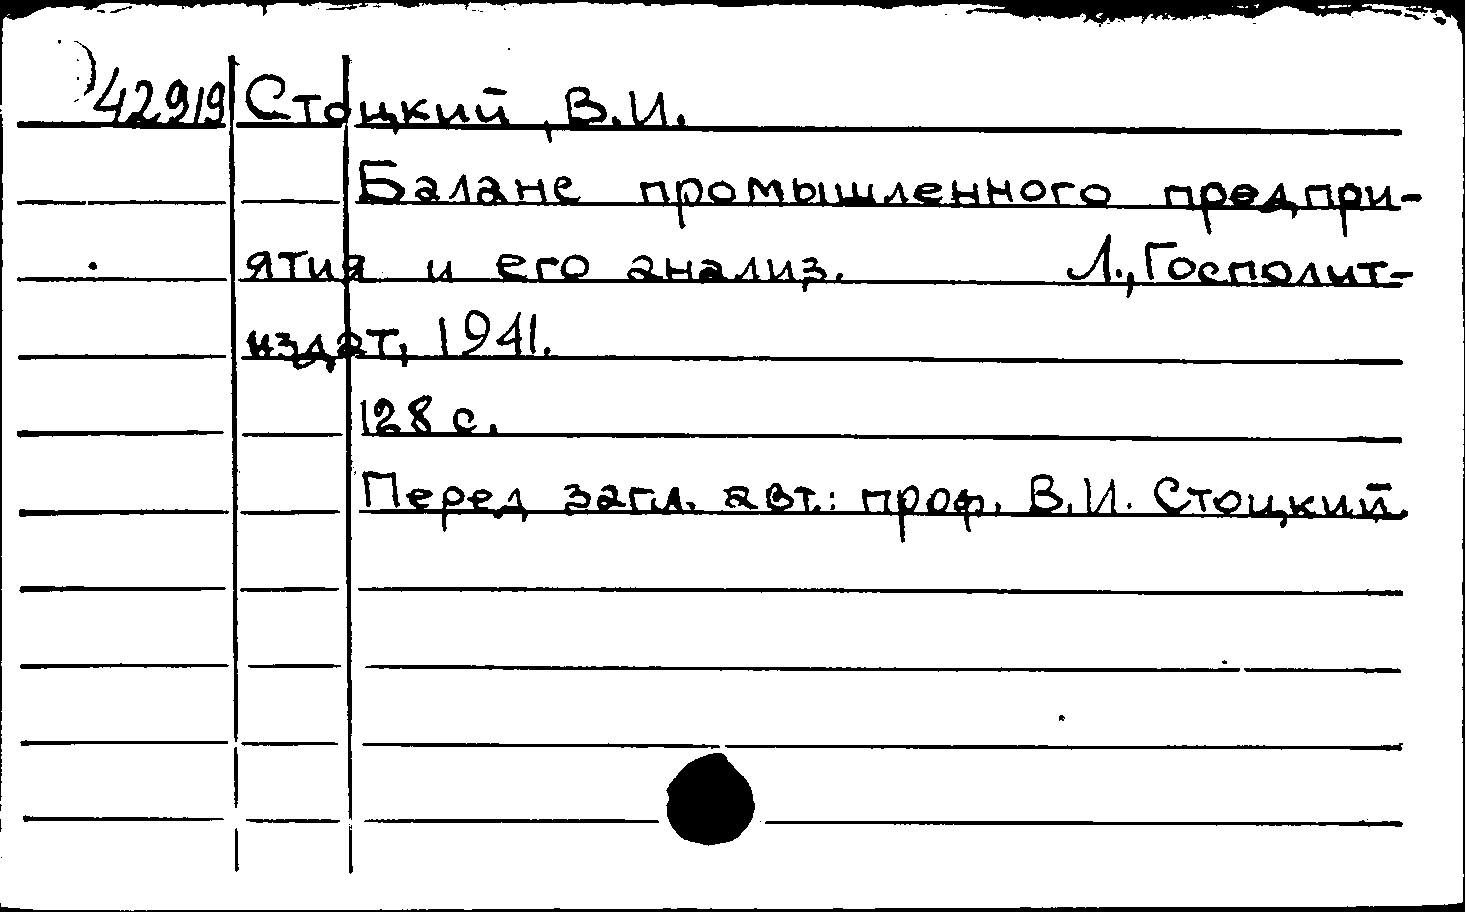 42919 Стоцкий, В.И.
Баланс промышленного предпри-
ятия и его анализ. Л., Госполит-
издат, 1941.
128 с.
Перед загл. авт.: проф. В.И. Стоцкий.